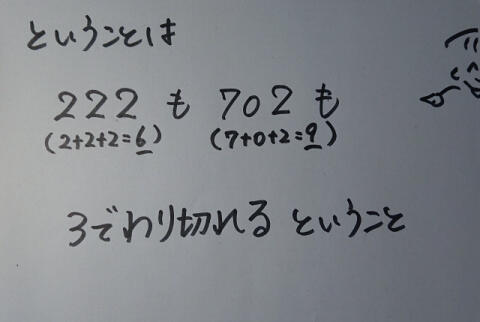 ということは
222も 702も
(2+2+2=6) (7+0+2=9)
3でわり切れるということ